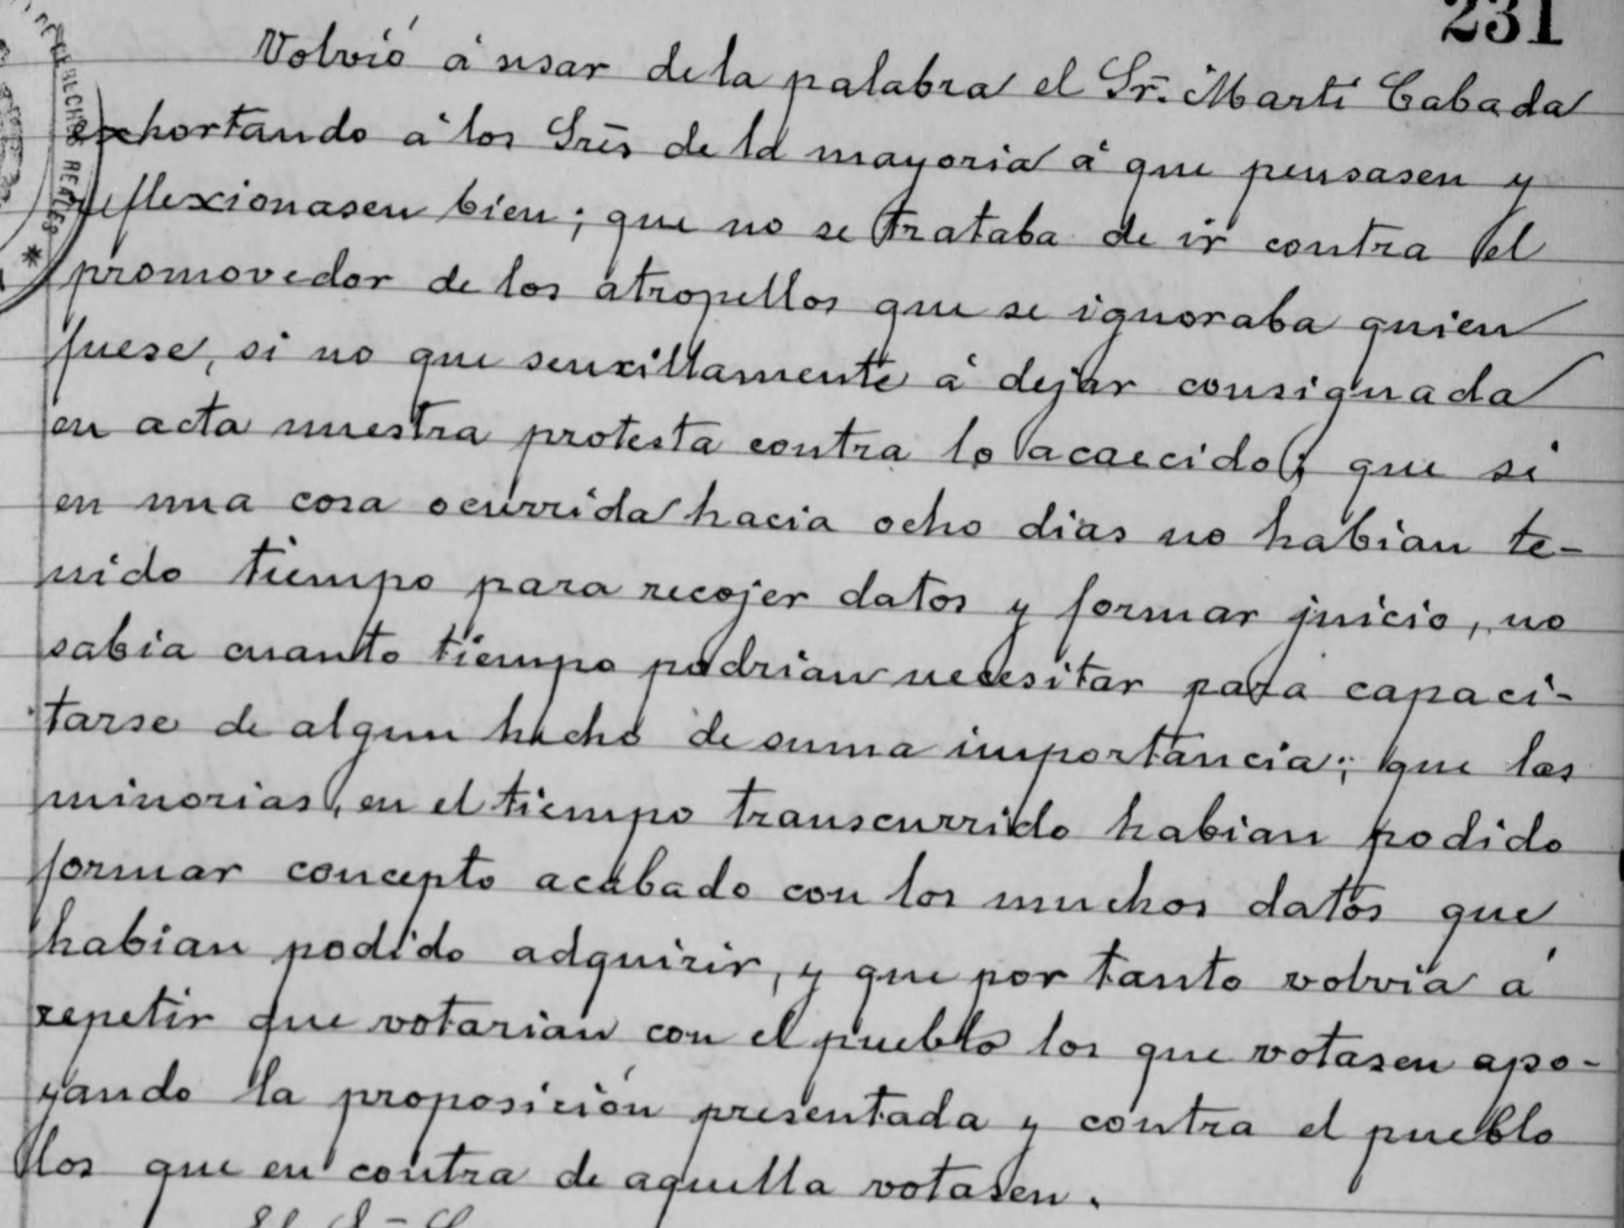 231
Volvió á usar de la palabra el Sr. Martí Cabada
exhortando á los Sres de la mayoria á que pensasen y
reflexionasen bien; que no se trataba de ir contra el
promovedor de los atropellos que se ignoraba quien
fuese, si no que senxillamente á dejar consignada
en acta nuestra protesta contra lo acaecido; que si
en una cosa ocurrida hacia ocho dias no habian te-
nido tiempo para recojer datos y formar juicio, no
sabia cuanto tiempo podrian necesitar para capaci-
tarse de algun hecho de suma importancia; que las
minorias, en el tiempo transcurrido habian podido
formar concepto acabado con los muchos datos que
habian podido adquirir, y que por tanto volvia á
repetir que votarian con el pueblo los que votasen apo-
yando la proposición presentada y contra el pueblo
los que en contra de aquella votasen.